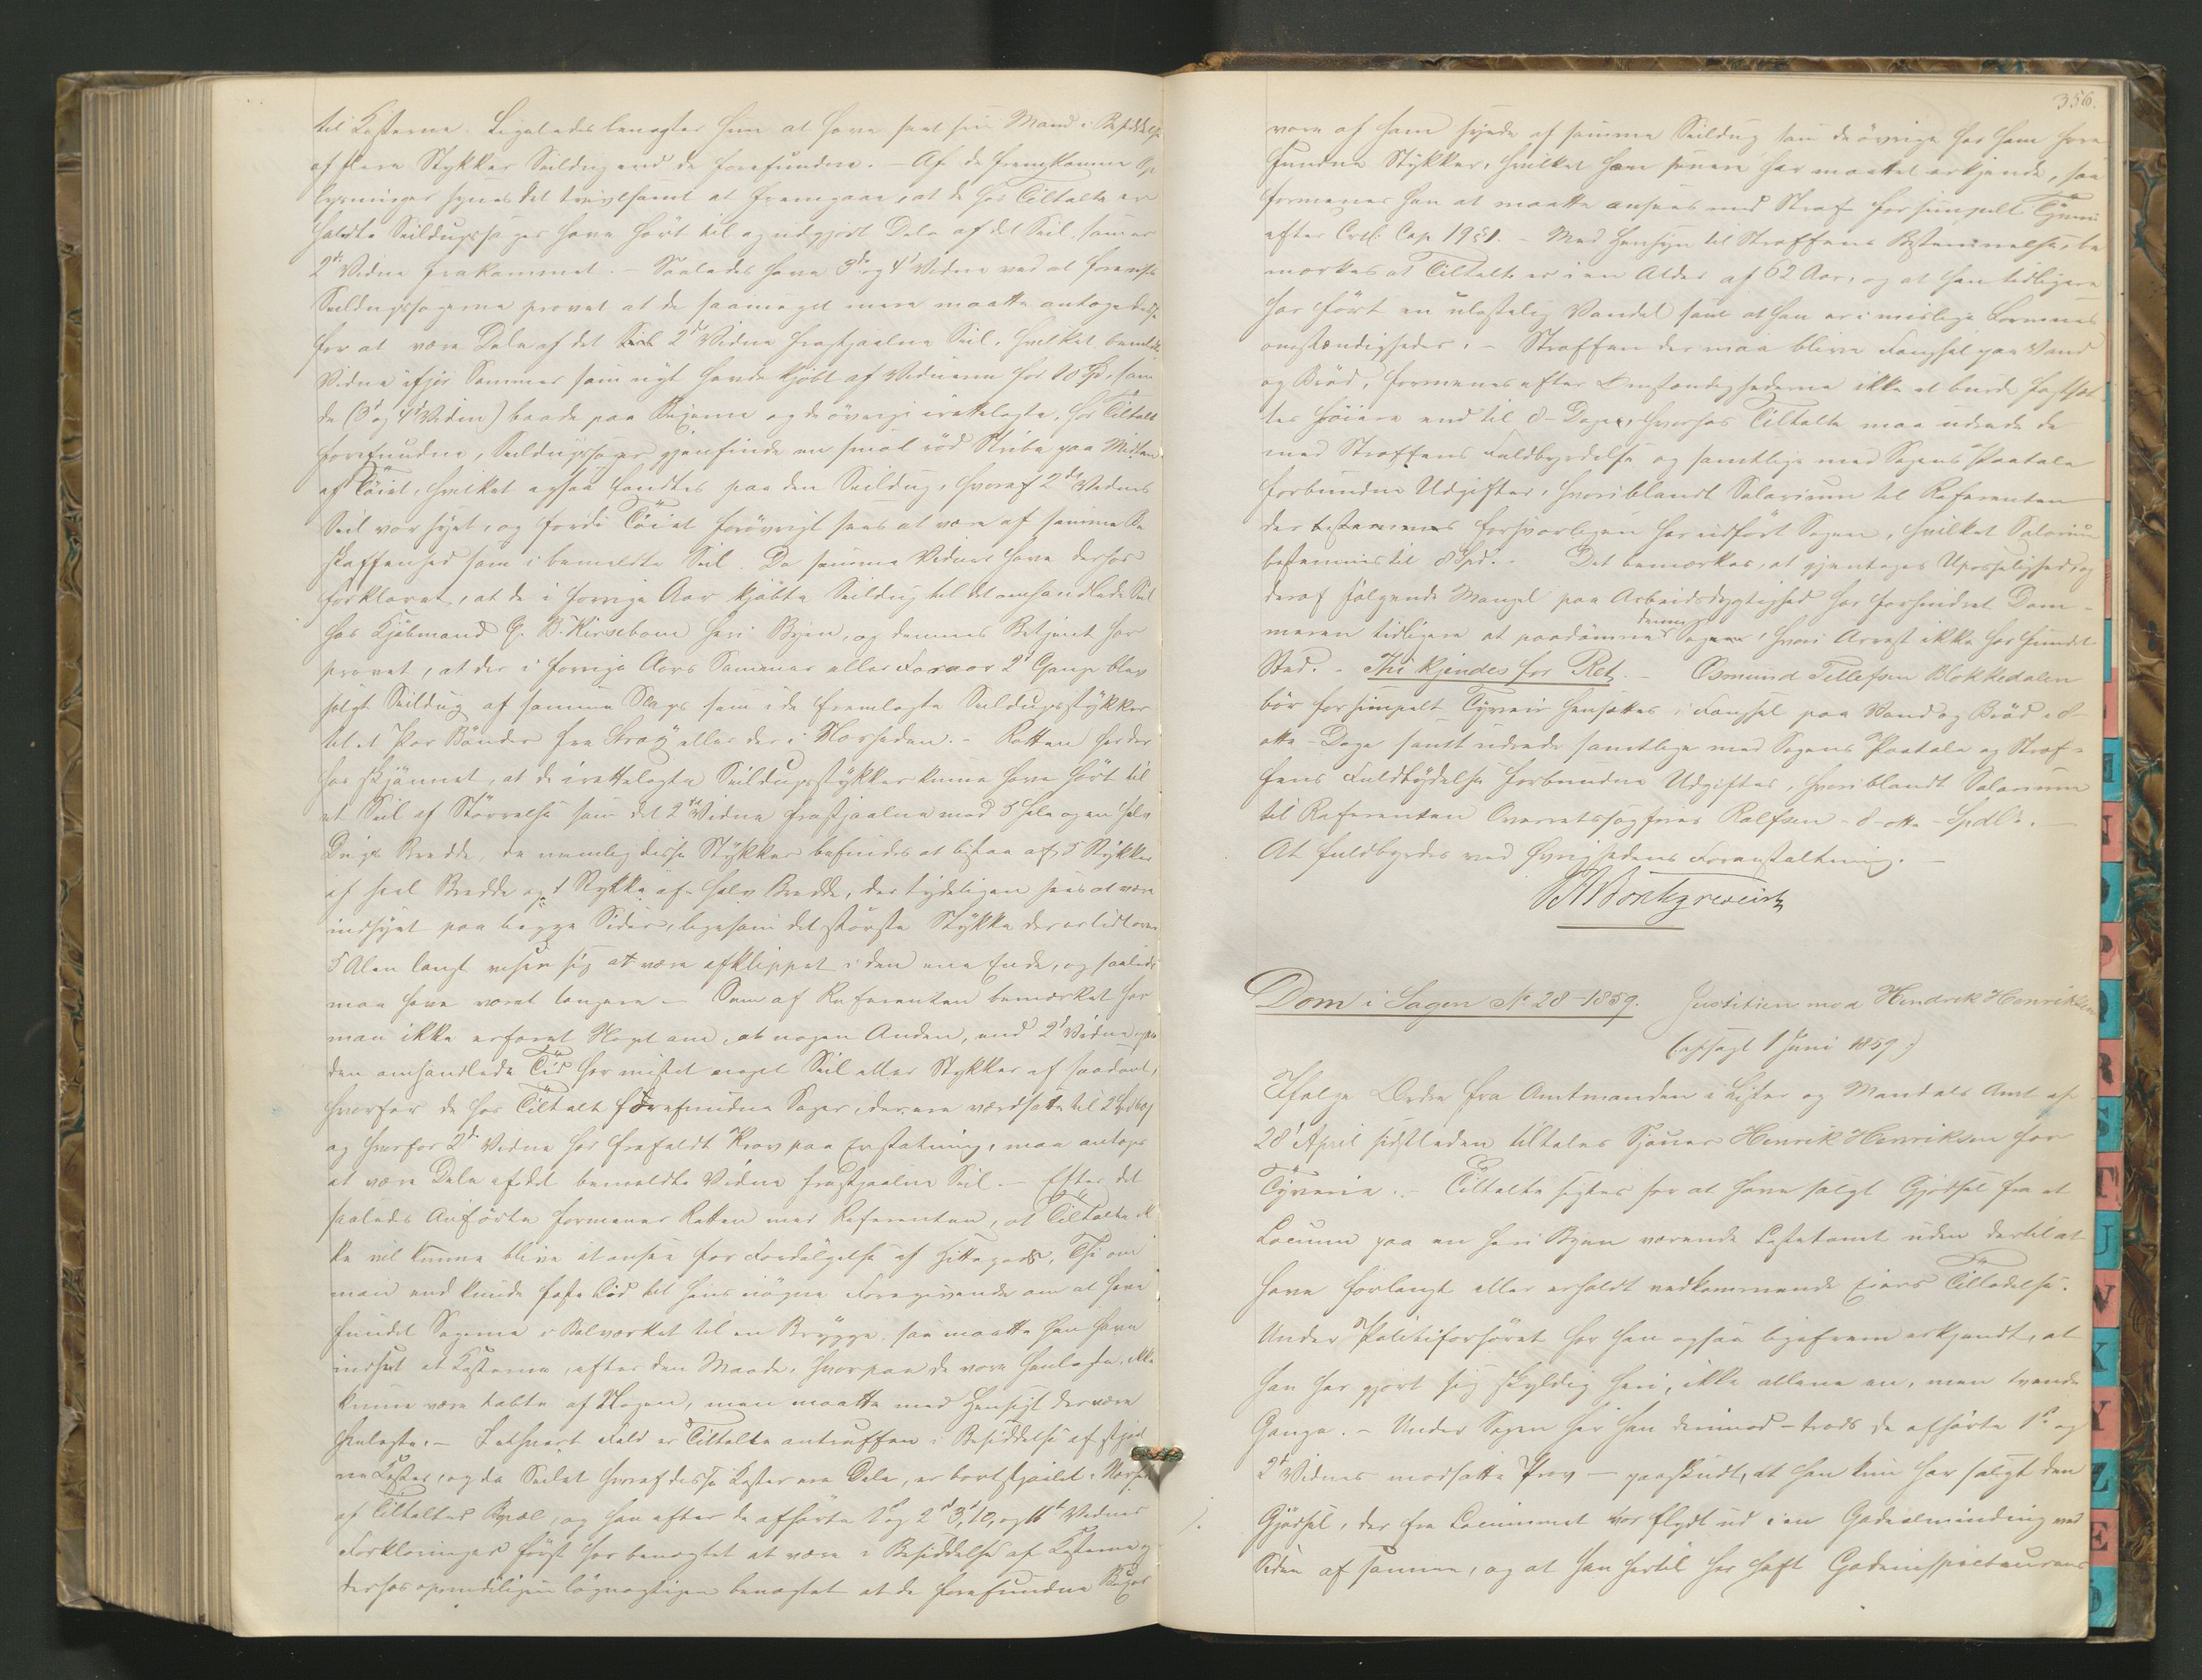 til Kosterne. Ligeledes benægter hun at have seet sin Mand i Besiddelse
af flere Stykker Seildug end de forefundne. – Af de fremkomne Op-
lysninger synes det tvivlsomt at fremgaae, at de hos Tiltalte an-
holdte Seildugssager have hørt til og udgjort Dele af det Seil, som er
2det Vidne frakommet. – Saaledes have 3die og 4de Vidne ved at
Seildugssagerne provet at de saameget mere maatte antage disse
for at være Dele af det 2det Vidne frastjaalne Seil, hvilket bemeldte
Vidne ifjor Sommer som nyt havde kjøbt af Vidnerne for 10 Spd, som
de (3die og 4de Vidne) baade paa Buxerne og de øvrige irettelagte, hos Tiltalte
forefundne, Seildugssager gjenfinde en smal rød Stribe paa Midten
af Tøiet, hvilket ogsaa fandtes paa den Seildug, hvoraf 2det Vidnes
Seil var syet, og fordi Tøiet forøvrigt sees at være af samme Be-
skaffenhed som i bemeldte Seil. De samme Vidner have derhos
forklaret, at de i forrige Aar kjøbte Seildug til det omhandlede Seil
hos Kjøbmand G. B. Kirsebom her i Byen, og dennes Betjent har
provet, at der i forrige Aars Sommer eller Foraar 2de Gange blev
solgt Seildug af samme Slags som i de fremlagte Seildugsstykker
til et Par Bønder fra Strai eller der i Nærheden. – Retten har der-
hos skjønnet, at de irettelagte Seildugsstykker kunne have hørt til
et Seil af Størrelse som det 2det Vidne frastjaalne med 5 hele og en halv
Dugs Bredde, da nemlig disse Stykker befindes at bestaae af 5 Stykker
af heel Bredde og 1 Stykke af halv Bredde, der tydeligen sees at være
indsyet paa begge Sider, ligesom det største Stykke der er lidt over
5 Alen langt viser sig at være afklippet i den ene Ende, og saaledes
maa have været længere – Som af Referenten bemærket har
man ikke erfaret Noget om, at nogen Anden, end 2det Vidne paa
den omhandlede Tid har mistet noget Seil eller Stykker af saadant,
hvorfor de hos Tiltalte forefundne Sager, der ere værdsatte til 2 Spd
og hvorfor 2det Vidne har frafaldt Krav paa Erstatning, maa antages
at være Dele af det bemeldte Vidne frastjaalne Seil. – Efter det
saaledes Anførte formener Retten med Referenten, at Tiltalte ik-
ke vil kunne blive at ansee for Fordølgelse af Hittegods, Thi om
man end kunde fæste Lid til hans nøgne Foregivende om at have
fundet Sagerne i Bolværket til en Brygge, saa maatte han have
indseet at Kosterne, efter den Maade, hvorpaa de vare henlagte, ikke
kunne være tabte af Nogen, men maatte med Hensigt der være
henlagte. – I ethvert Fald er Tiltalte antruffen i Besiddelse af stjaal-
ne Koster, og da Seilet hvoraf disse Koster ere Dele, er bortstjaalet i Nærheden
af Tiltaltes Bopæl, og han efter de afhørte 1ste og 2det, 3die, 10, og 11te Vidners
Forklaringer først har benægtet at være i Besiddelse af Kosterne og
derhos oprindeligen løgnagtigen benægtet at de forefundne Buxer
356.
vare af ham syede af samme Seildug som de øvrige hos ham fore-
fundne Stykker, hvilket han senere har maattet erkjende, saa
formenes han at maatte ansees med Straf for simpelt Tyveri
efter Crl: Cap 19 § 1. – Med Hensyn til Straffens Bestemmelse, be-
mærkes at Tiltalte er i en Alder af 62 Aar, og at han tidligere
har ført en ulastelig Vandel samt at han er i mislige Formues-
omstændigheder. – Straffen der maa blive Fængsel paa Vand
og Brød, formenes efter Omstændighederne ikke at burde fastsæt-
tes høiere end til 8 – Dage, hvorhos Tiltalte maa udrede de
med Straffens Fuldbyrdelse og samtlige med Sagens Paatale
forbundne Udgifter, hvoriblandt Salarium til Referenten
der forsvarligen har udført Sagen, hvilket Salarium
bestemmes til 8 Spd. – Det bemærkes, at gjentagen Upasselighed, og
deraf følgende Mangel paa Arbeidsdygtighed har forhindret Dom-
meren tidligere at paadømme denne Sag, hvori Arrest ikke har fundet
Sted. – Thi kjendes for Ret. – Osmund Tellefsen Blokkedalen
bør for simpelt Tyveri hensættes i Fængsel paa Vand og Brød i 8 –
otte – Dage samt udrede samtlige med Sagens Paatale og Straf-
fens Fuldbyrdelse forbundne Udgifter, hvoriblandt Salarium
til Referenten Overretssagfører Rolfsen – 8 – otte – Spdlr. –
At fuldbyrdes ved Øvrighedens Foranstaltning. –
Dom i Sagen No 28 – 1859. Justitien mod Hendrik Henriksen
(:afsagt 1 Juni 1859:)
Ifølge Ordre fra Amtmanden i Lister og Mandals Amt af
28de April sidstleden tiltales Sjouer Henrik Henriksen for
Tyveri. – Tiltalte sigtes for at have solgt Gjødsel fra et
Locum paa en her i Byen værende Løstetomt uden dertil at
have forlangt eller erholdt vedkommende Eiers Tilladelse.
Under Politiforhøret har han ogsaa ligefrem erkjendt, at
han har gjort sig skyldig heri, ikke allene en, men tvende
Gange. – Under Sagen har han derimod – trods de afhørte 1ste og
2det Vidnes modsatte Prov – paaskudt, at han kun har solgt den
Gjødsel, der fra Locummet var flydt ud i en Gadealminding ved
Siden af samme, og at han hertil har havt Gadeinspecteurens